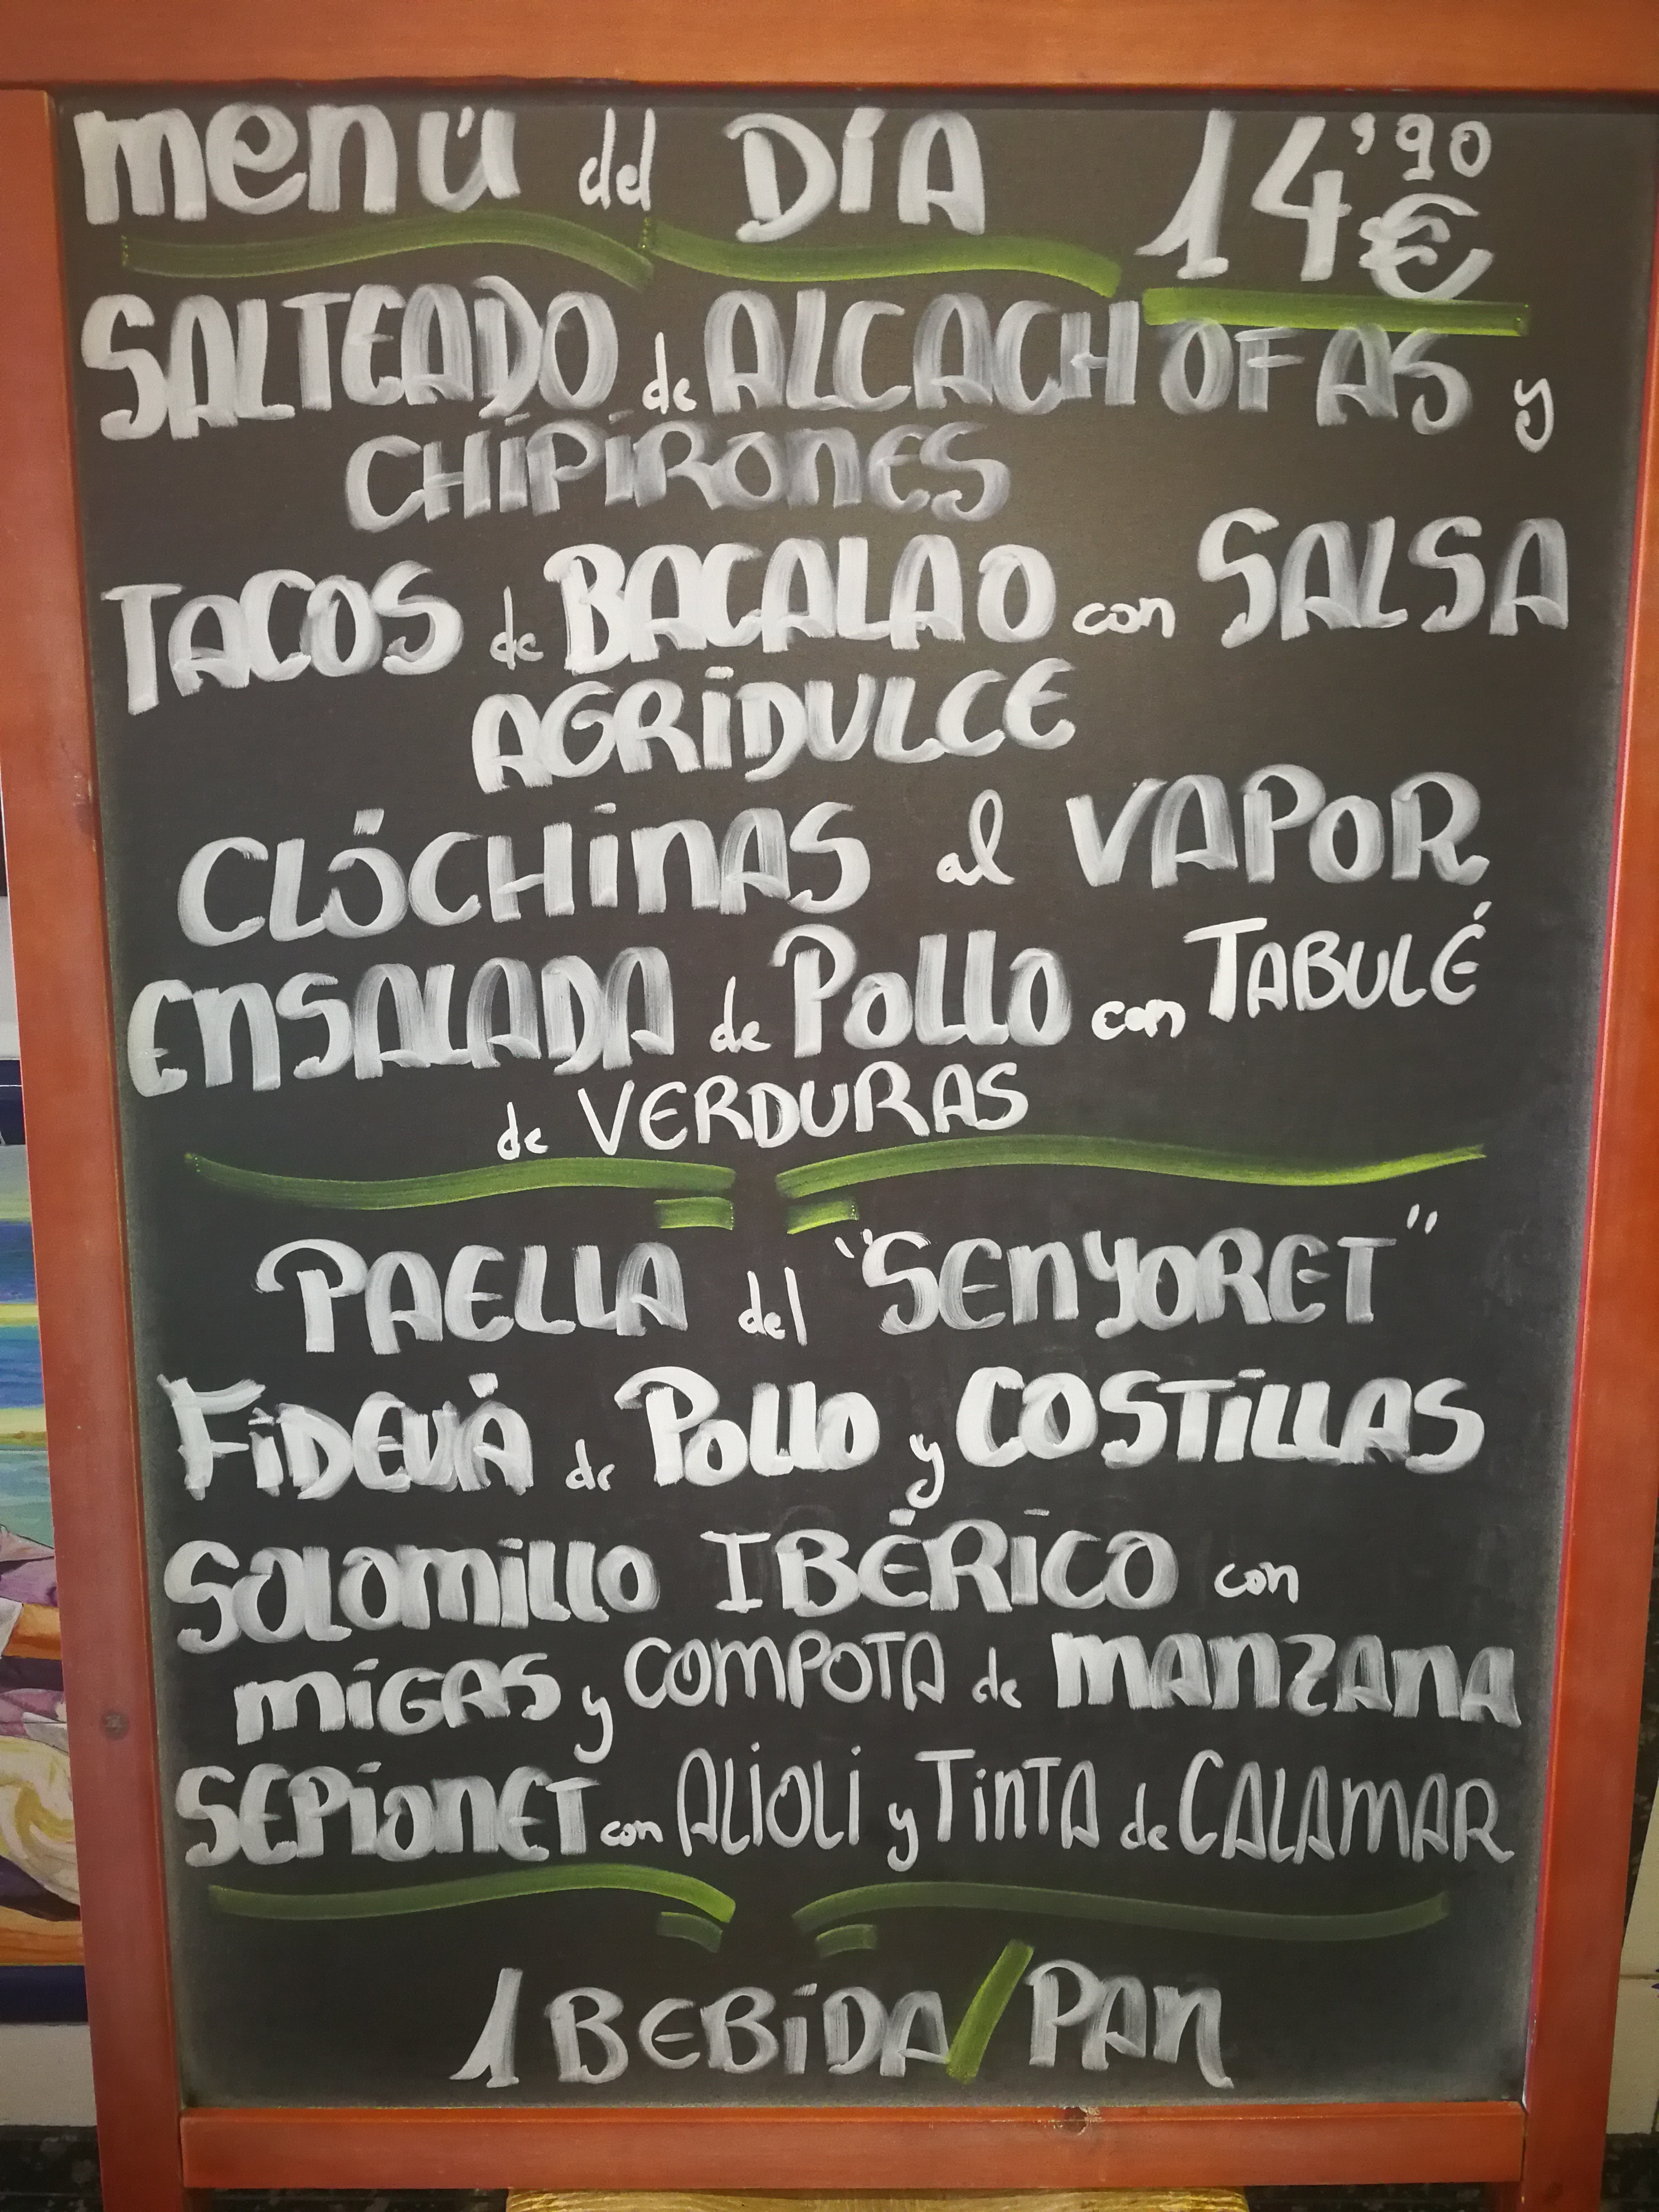 menú del DÍA 14'90 €
SALTEADO de ALCACHOFAS y
CHIPIRONES
TACOS de BACALAO con SALSA
AGRIDULCE
CLÓCHINAS al VAPOR
ENSALADA de POLLO con TABULÉ
de VERDURAS
PAELLA del "SENYORET"
FIDEUÀ de POLLO y COSTILLAS
SOLOMILLO IBÉRICO con
MIGAS y COMPOTA de MANZANA
SEPIONET con ALIOLI y TINTA de CALAMAR
1 BEBIDA/PAN